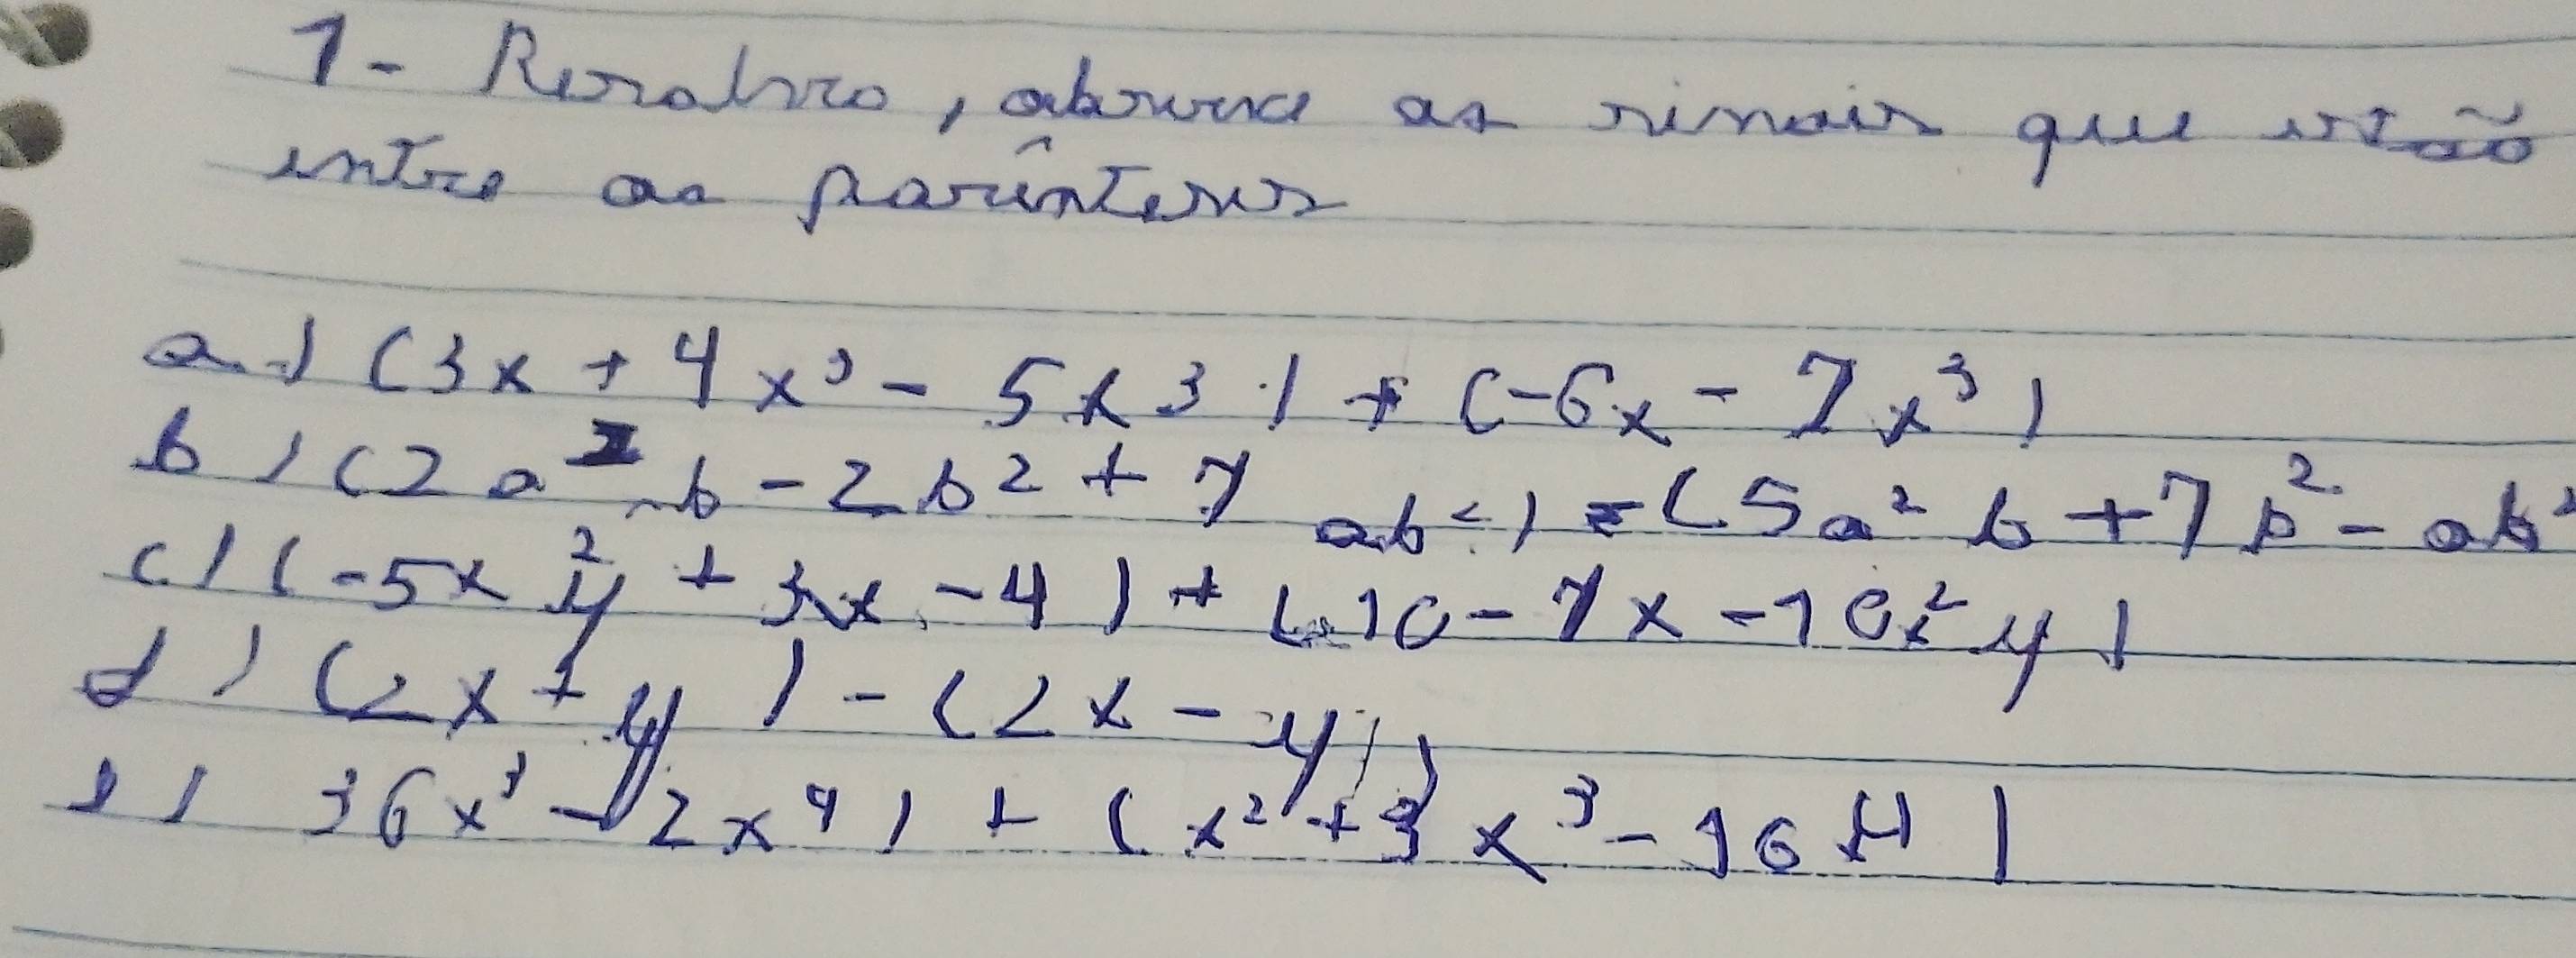 1- Resolva, observe os sinais que estão
entre os parênteses
a) (3x + 4x³ - 5x3) + (-6x - 7x³)
b) (2a² b - 2b² + 7 ab²) - (5a² b + 7b² - ab²
c) (-5x²y + 3x - 4) + (-10 - 7x - 10x²y)
d) (2x + y) - (2x - y)
e) 36x³ - 12x⁴) + (x² + 3x³ - 16